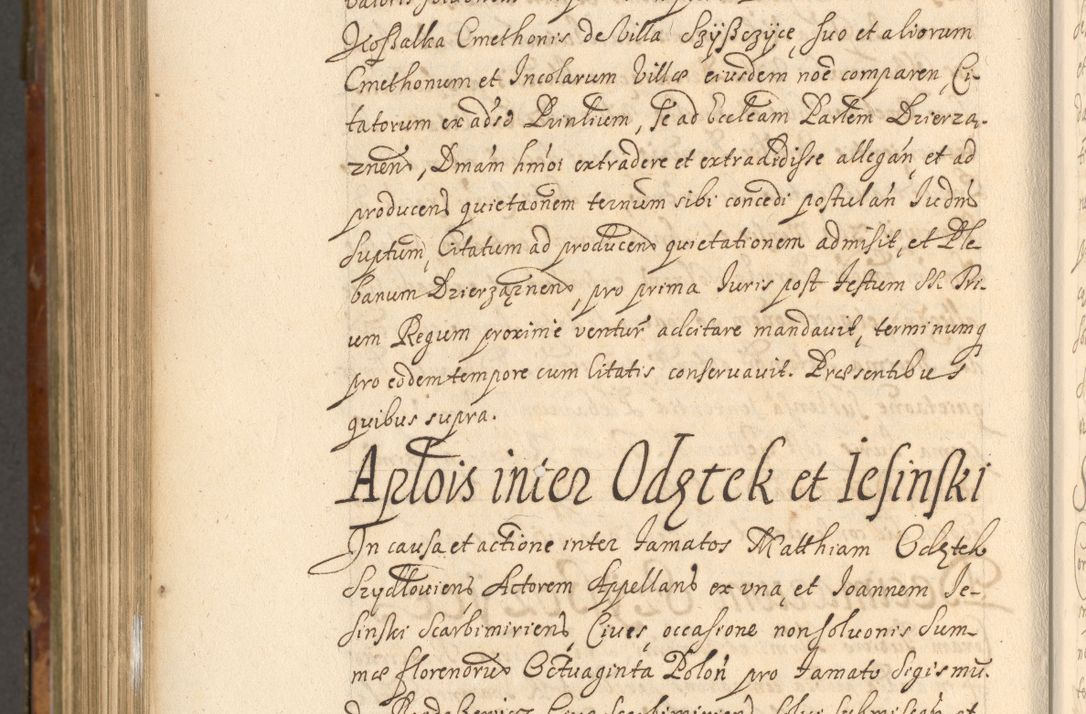 Koßałka Cmethonis de Villa Szÿßczÿcę, suo et aliorum
Cmethonum et Incolarum Villæ eiusdem noẽ comparen, Ci-
tatorum ex adso Printium, se ad Eccleam Partem Dzierzą-
znen, Dmam hmoi extradere et extradidisse allegań, et ad
producens quietaonem ternum sibi concedi postulań Iudńs
suptum, Citatum ad producen quietationem admisit, et Ple
banum Dzierząznen, pro prima Iuris post Festum SS. Tri-
um Regum proxime ventur adcitare mandauit, terminumq
pro eodem tempore cum Citatis conseruauit. Præsentibus
quibus supra.
Apłois inter Odztek et Iesinski
In causa et actione inter famatos Matthiam Odztek
Szydłouiens Actorem Appellans ex vna, et Ioannem Ie-
sinski Scarbimiriens Ciues, occasione non soluonis Sum-
mæ florenorum Octuaginta Polon pro famato Sigismu-